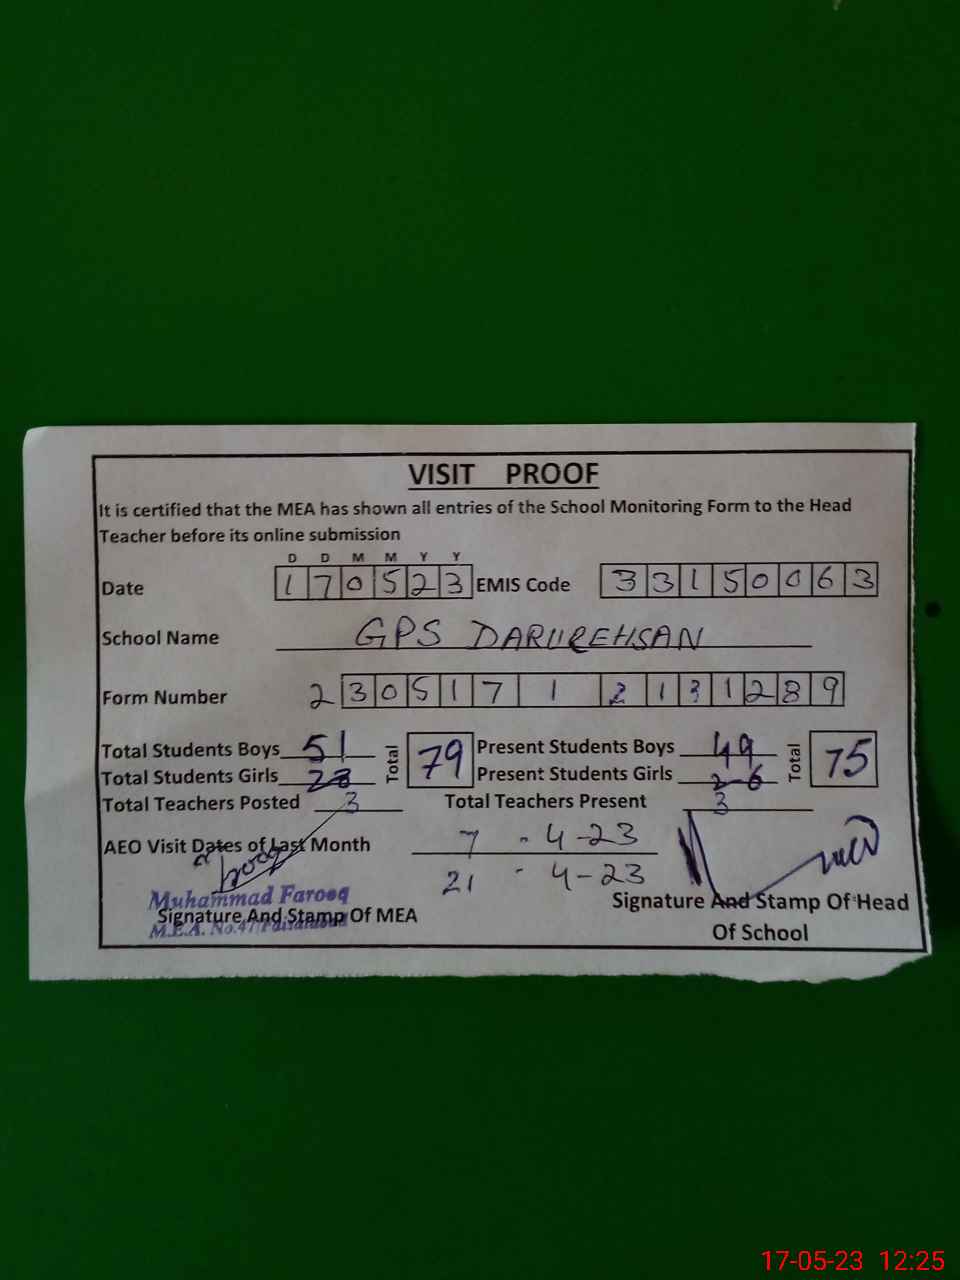 VISIT PROOF
It is certified that the MEA has shown all entries of the School Monitoring Form to the Head
Teacher before its online submission
D D M M Y Y
Date 1 7 0 5 2 3 EMIS Code 3 3 1 5 0 0 6 3
School Name GPS DARULREHSAN
Form Number 2 3 0 5 1 7 1 2 1 3 1 2 8 9
Total Students Boys 51 Total 79 Present Students Boys 49 Total 75
Total Students Girls 28 Present Students Girls 26
Total Teachers Posted 3 Total Teachers Present 3
AEO Visit Dates of Last Month 7 - 4-23
21 - 4-23
Muhammad Farooq
Signature And Stamp Of MEA
M.E.A. No.47 Faisalabad
Signature And Stamp Of Head
Of School
17-05-23 12:25